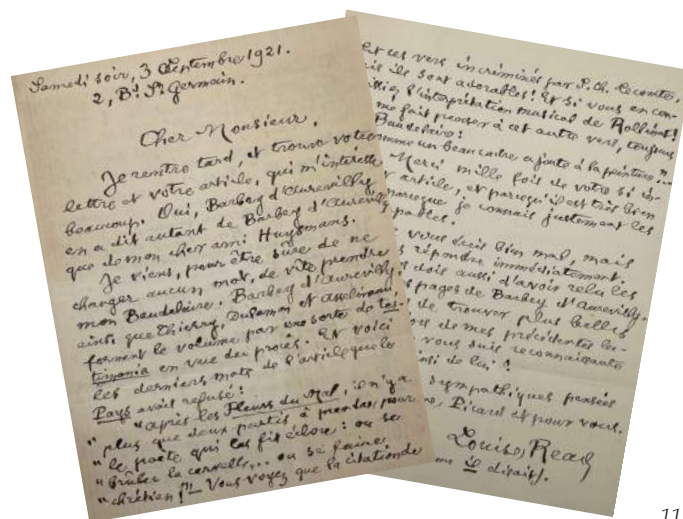 Samedi soir, 3 Septembre 1921.
2, Bd St Germain.
Cher Monsieur,
Je rentre tard, et trouve votre
lettre et votre article, qui m'intéresse
beaucoup. Oui, Barbey d'Aurevilly
en a dit autant de Barbey d'Aurevilly
que de mon cher ami Huysmans.
Je viens, pour être sûre de ne
changer aucun mot, de vite prendre
mon Baudelaire. Barbey d'Aurevilly,
ainsi que Thierry, Dulamon et Asselineau
forment le volume par une sorte de tes-
timonia en vue du procès. Et voici
les derniers mots de l'article que le
Pays avait refusé :
" après les Fleurs du Mal, il n'y a
" plus que deux partis à prendre pour
" le poète qui les fit éclore : ou se
" brûler la cervelle... ou se faire
" chrétien !" — Vous voyez que la citation de
et ces vers incriminés par J. Ch. Lecomte,
ils sont adorables ! Et si vous en con-
l'interprétation musical de Rollinat !
me fait penser à cet autre vers, toujours
Baudelaire :
comme un beau cadre ajoute à la peinture...
Merci mille fois de votre si in-
article, et parce qu'il est très bien
parce que je connais justement les
vous écris bien mal, mais
répondre immédiatement
dois aussi d'avoir relu les
pages de Barbey d'Aurevilly.
de trouver plus belles
de mes précédentes
vous suis reconnaissante
de lui !
sympathiques pensées
Picard et pour vous.
Louise Read
me il disait).
11